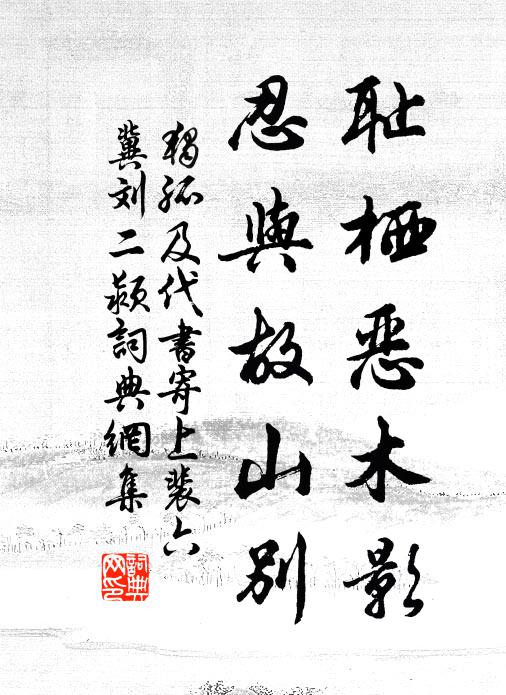 耻栖恶木影
忍與故山别
獨孤及代書寄上裴六
冀刘二颍詞典網集
詞典網印